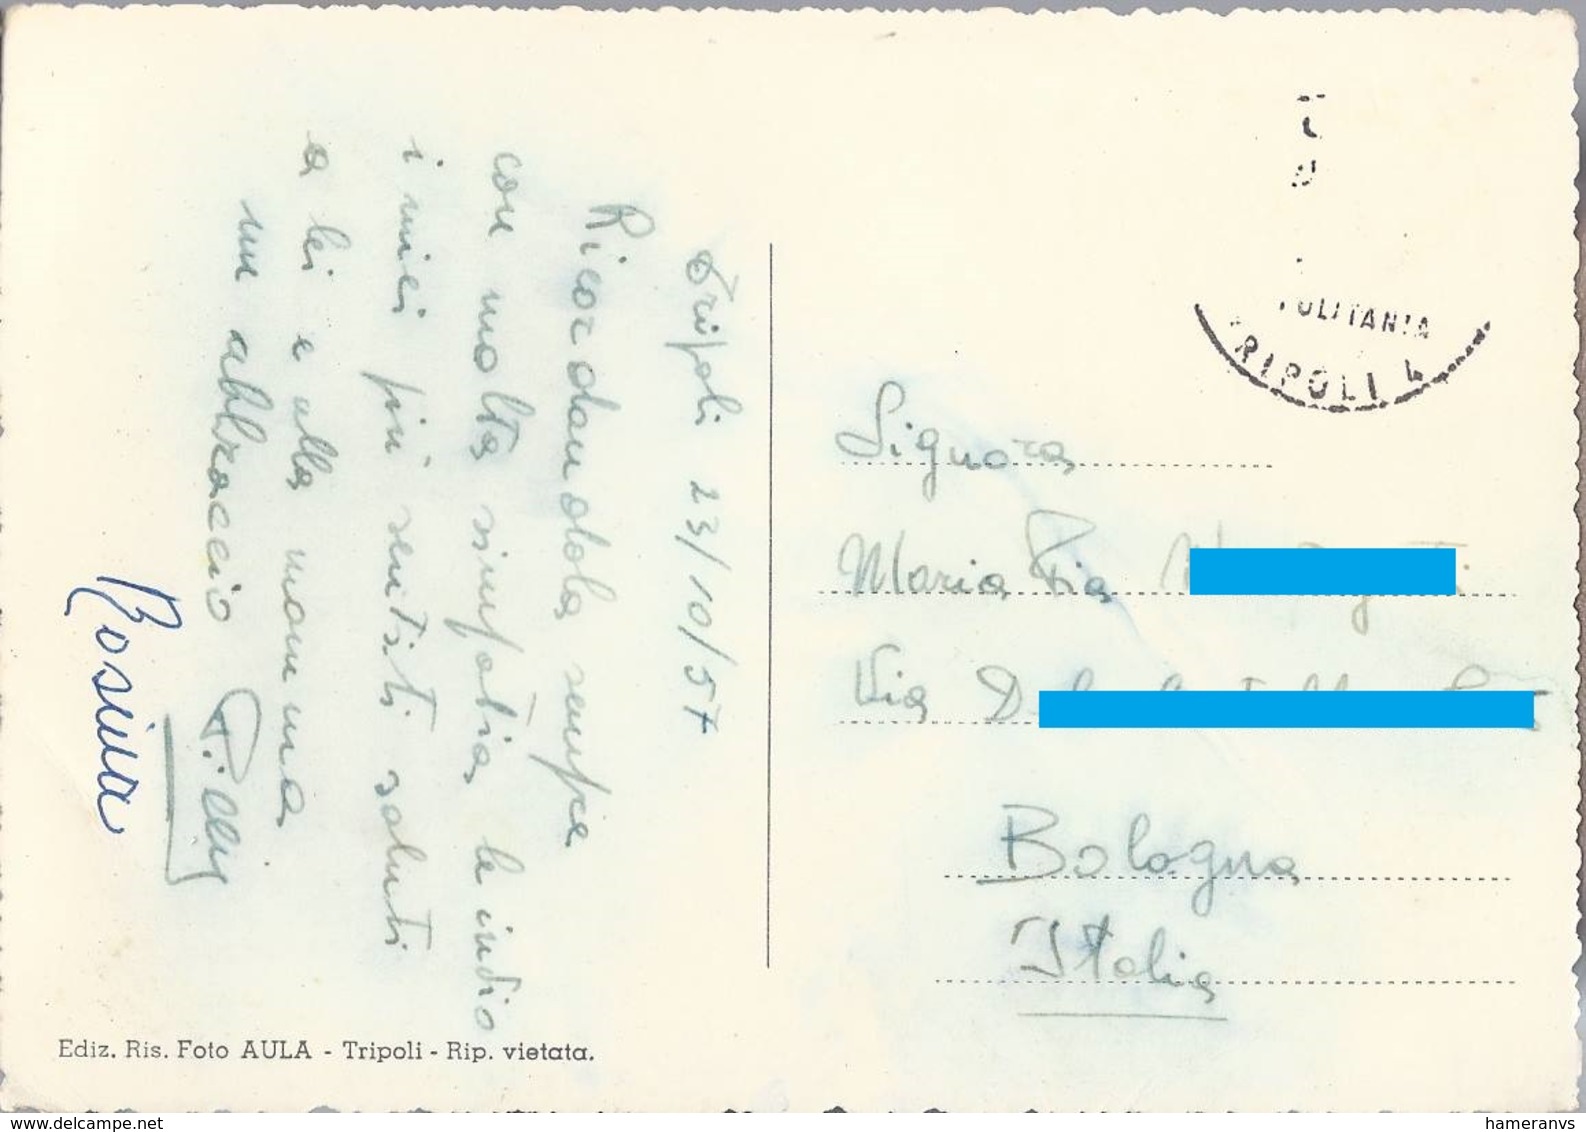 Tripoli 23/10/57
Ricordandola sempre
con molta simpatia, le invio
i miei più sentiti saluti
a lei e alla mamma
un abbraccio
Rosina
Ediz. Ris. Foto AULA - Tripoli - Rip. vietata.
POLITANIA
RIPOLI 4
Signora
Maria Pia
Via
Bologna
Italia
www.delcampe.net
hameranvs